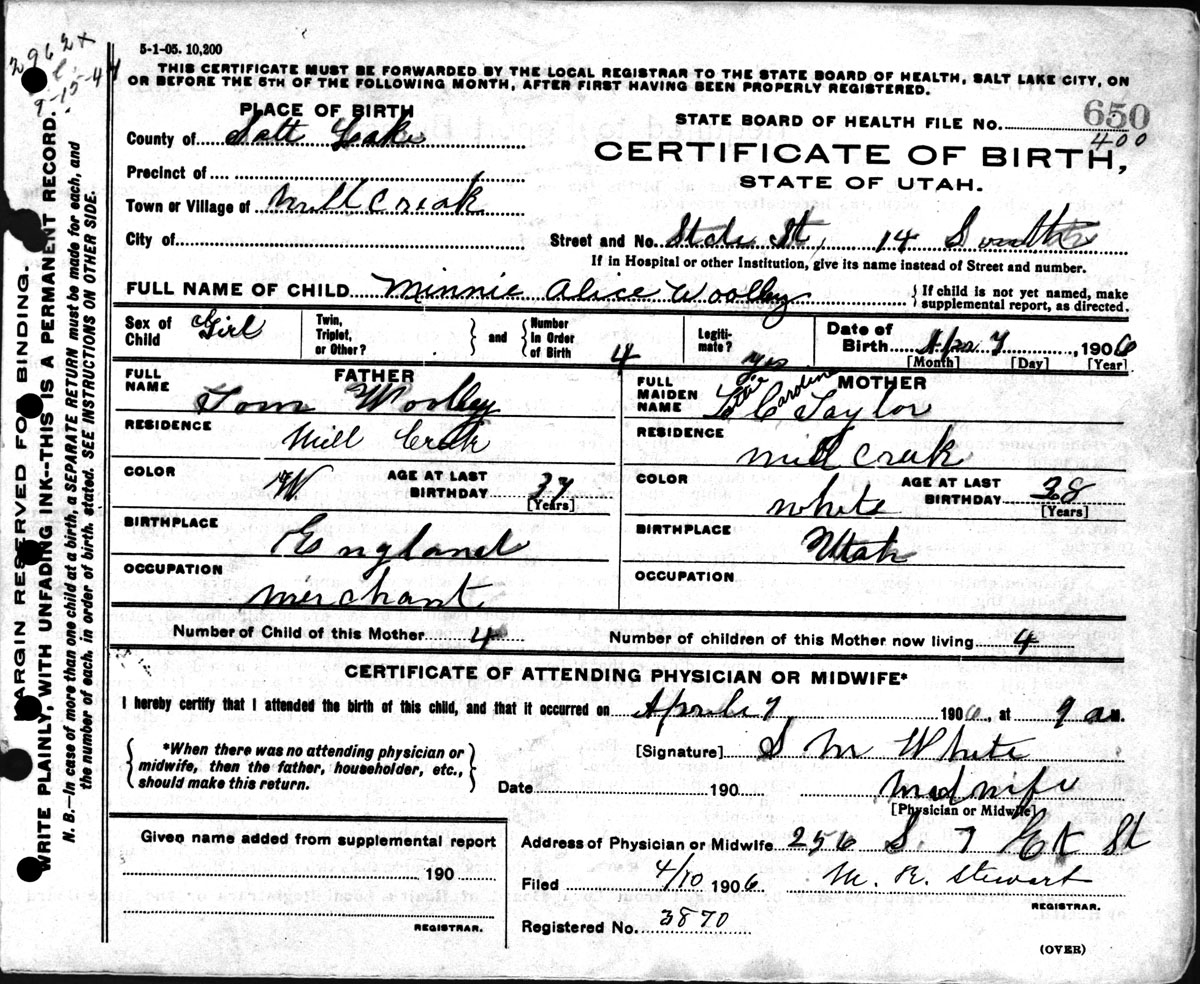 2962+
9-15-44
5-1-05. 10,200
THIS CERTIFICATE MUST BE FORWARDED BY THE LOCAL REGISTRAR TO THE STATE BOARD OF HEALTH, SALT LAKE CITY, ON
OR BEFORE THE 5TH OF THE FOLLOWING MONTH, AFTER FIRST HAVING BEEN PROPERLY REGISTERED.
PLACE OF BIRTH
STATE BOARD OF HEALTH FILE No. 650
400
County of Salt Lake
CERTIFICATE OF BIRTH,
STATE OF UTAH.
Precinct of
Town or Village of Mill Creak
City of
Street and No. State St, 14 South
If in Hospital or other Institution, give its name instead of Street and number.
FULL NAME OF CHILD Minnie Alice Woolley { If child is not yet named, make
supplemental report, as directed.
Sex of Child Girl
Twin, Triplet, or Other? } and { Number In Order of Birth 4
Legiti-mate? yes
Date of Birth Apr 7, 1906
[Month] [Day] [Year]
FATHER
FULL NAME Tom Woolley
RESIDENCE Mill Creak
COLOR W AGE AT LAST BIRTHDAY 37
[Years]
BIRTHPLACE England
OCCUPATION merchant
MOTHER
FULL MAIDEN NAME C Caroline Taylor
RESIDENCE mill creak
COLOR white AGE AT LAST BIRTHDAY 38
[Years]
BIRTHPLACE Utah
OCCUPATION
Number of Child of this Mother 4 Number of children of this Mother now living 4
CERTIFICATE OF ATTENDING PHYSICIAN OR MIDWIFE*
I hereby certify that I attended the birth of this child, and that it occurred on 7 1906, at 9 am.
{ *When there was no attending physician or
midwife, then the father, householder, etc.,
should make this return. }
[Signature] S M White
Date 190 midwife
[Physician or Midwife]
Given name added from supplemental report
190
REGISTRAR.
Address of Physician or Midwife 256 S. 7 St
Filed 4/10 1906 M. R. Stewart
REGISTRAR.
Registered No. 3870
(OVER)
MARGIN RESERVED FOR BINDING.
WRITE PLAINLY, WITH UNFADING INK--THIS IS A PERMANENT RECORD.
N. B.—In case of more than one child at a birth, a SEPARATE RETURN must be made for each, and
the number of each, in order of birth, stated. SEE INSTRUCTIONS ON OTHER SIDE.